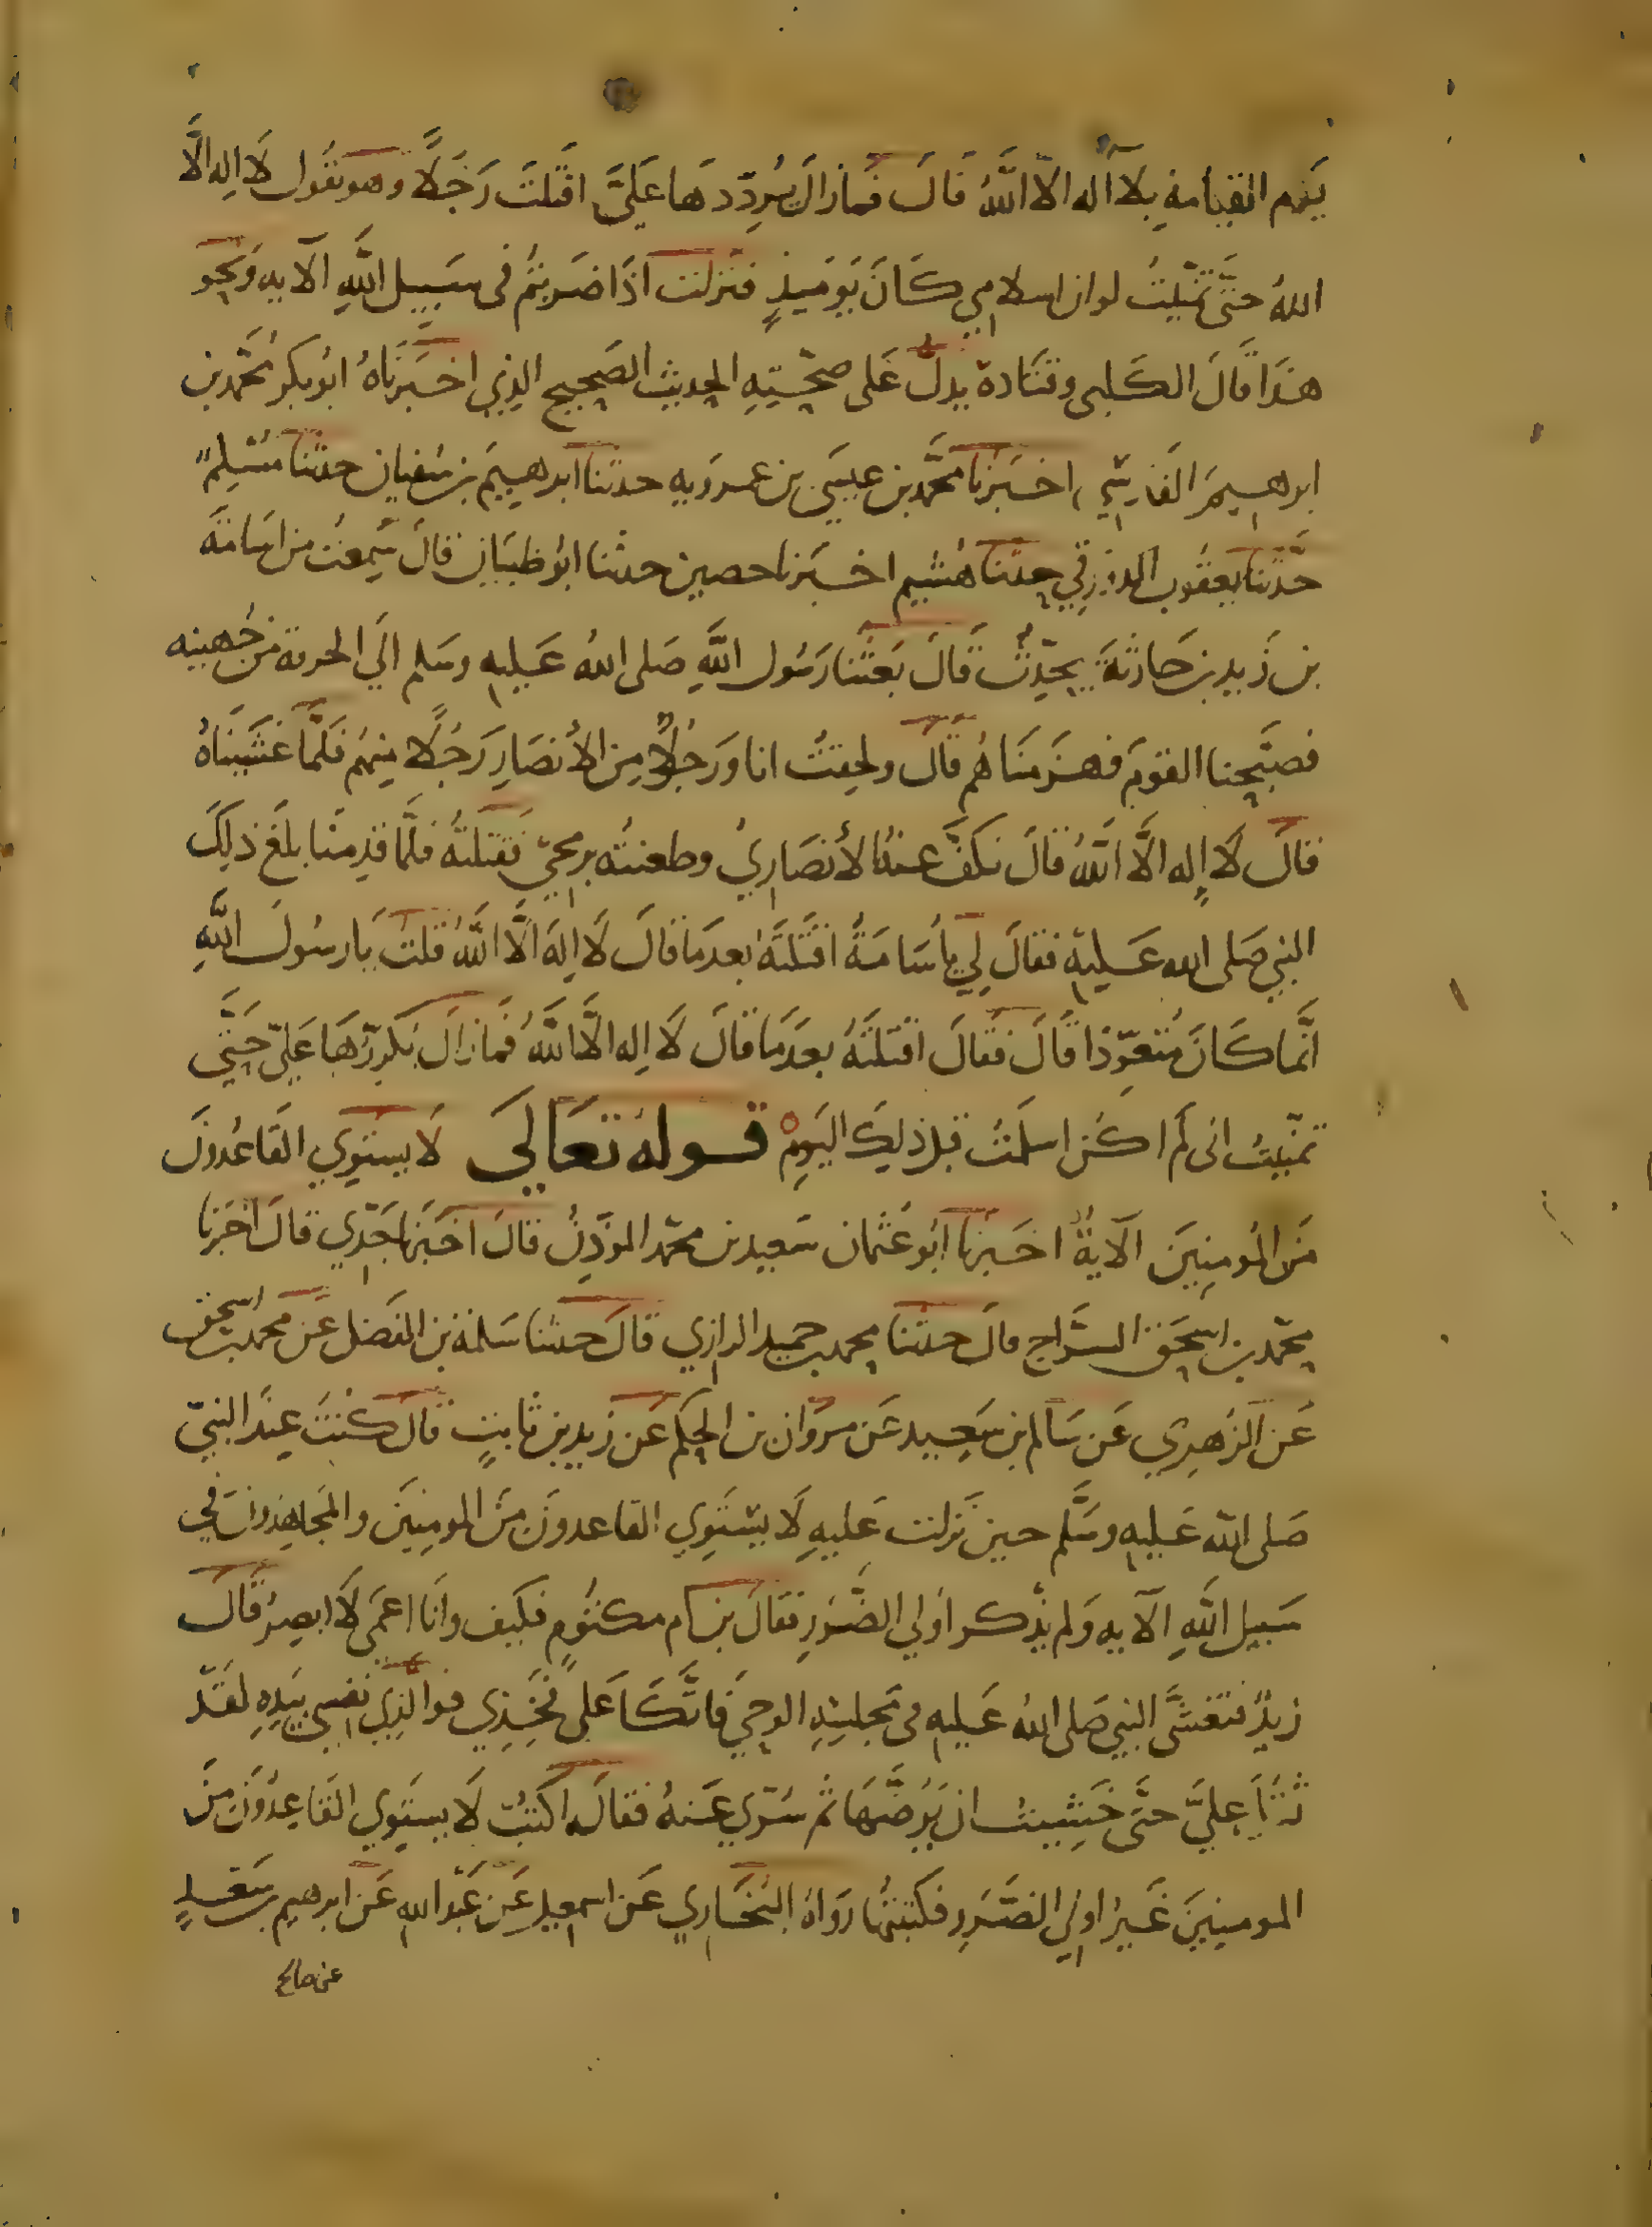 يَوم القيامةِ بلا اله الا اللّهُ قالَ فما زال يُردّدها عَليَّ اقتَلتَ رَجَلاً وهو يقُول لَا اِله الَّا
اللهُ حتَّى تَمنّيتُ لو ان اسلامي كَانَ يَوميذٍ فنزلت اذَا ضَربتُم فى سَبيل اللَّهِ الآيه ونحو
هذَا قالَ الكَلبى وقتَادة يدلُّ عَلى صحّتِهِ الحديث الصَحيح الذي اخبَرنَاهُ ابُو بكر مُحَّمد بن
ابرهيمَ الفَارسي اخبَرنا محمَّد بن عيسَى بن عمرويه حدثنا ابرهيمَ بن سُفيان حدثنا مُسْلِم
حدَّثنا يعقُوب الدورقي حدثنا هُشيم اخبَرنا حصين حدثنا ابُو ظبيَان قالَ سَمعتُ من اسَامَةَ
بن زَيد بن حَارثَةَ يحدِّثُ قَالَ بَعثَنا رَسُول اللَّهِ صَلى اللهُ عَليه وسَلم الَي الحرقة من جُهينه
فصبَّحنا القومَ فهزَمنَاهُم قالَ ولحِقتُ انا ورَجُلٌ مِن الأنصَارِ رَجُلًا مِنهُم فلَمَّا غَشَينَاهُ
قالَ لَا اِله الَّا اللَّهُ قالَ فكَفَّ عنهُ الأنصَاريُ وطعنتُه برمحيّ فَقتلتُهُ فلَمَّا قدِمنَا بلَغَ ذلِكَ
النبي صَلى الله عَليهِ فقالَ لِي يا أُسَامَةُ اقتَلتَهُ بعدَ مَا قالَ لَا اِلهَ الَّا اللَّهُ قلتُ يَا رسُولَ اللَّهِ
انَّما كَانَ مُتعوّذا قَالَ فقالَ اقتَلتَهُ بعدَ مَا قالَ لَا اله الَّا اللَّهُ فمَا زالَ يُكررُهَا عَليّ حَتَّي
تمنّيتُ انى لَم اكُن اسلَمتُ قبل ذلِكَ اليَومِ قوله تعَالَي لَا يستَوي القَاعُدونَ
مَن المُومِنِينَ الآيةُ اخبَرنا ابُو عُثمان سَعيد بن محمّد الموذِنُ قالَ اخَبَرنا جَدّي قالَ اخبَرنا
محّمد بن اسحَق السّراج قالَ حدثنا محمد بن حميد الرازي قالَ حدثنا سَلمة بن الفَضل عَن محمد بن اسحق
عَن الزهري عَن سَالم بن سَعيد عَن مروَان بن الحكَم عَن زَيد بن ثابتٍ قالَ كنتُ عِندَ النبيّ
صَلى اللّه عَليه وسَلَّم حين نَزلت عَليهِ لَا يستَوِي القَاعدونَ مِنَ المومِنِينَ والمجَاهِدونَ في
سَبيل اللَّهِ الآيه وَلم يذْكر اوُلي الضَّرَرِ فقالَ بن ام مكتُومٍ فكيف وانَا اعمَى لَا ابصِرُ قالَ
زيدٌ فتغشَّى النبي صَلى اللهُ عَليه فى مَجلِسِهِ الوحي فاتَّكَا عَلى فَخِذِي فوالَّذِي نفسِي بيَدِهِ لقَدْ
عليَّ حتَّى خَشِيتُ ان يَرُضّهَا ثُم سُرّي عَنهُ فقالَ اكتُبْ لَا يستَوي القَاعِدُونَ مِنَ
المومنِينَ غَيرُ اولِي الضّرَرِ فكتبتُها روَاهُ البُخَاري عَن اسمعيل عَن عَبْد الله عَن ابرهيم بن سَعدٍ
عن صالح